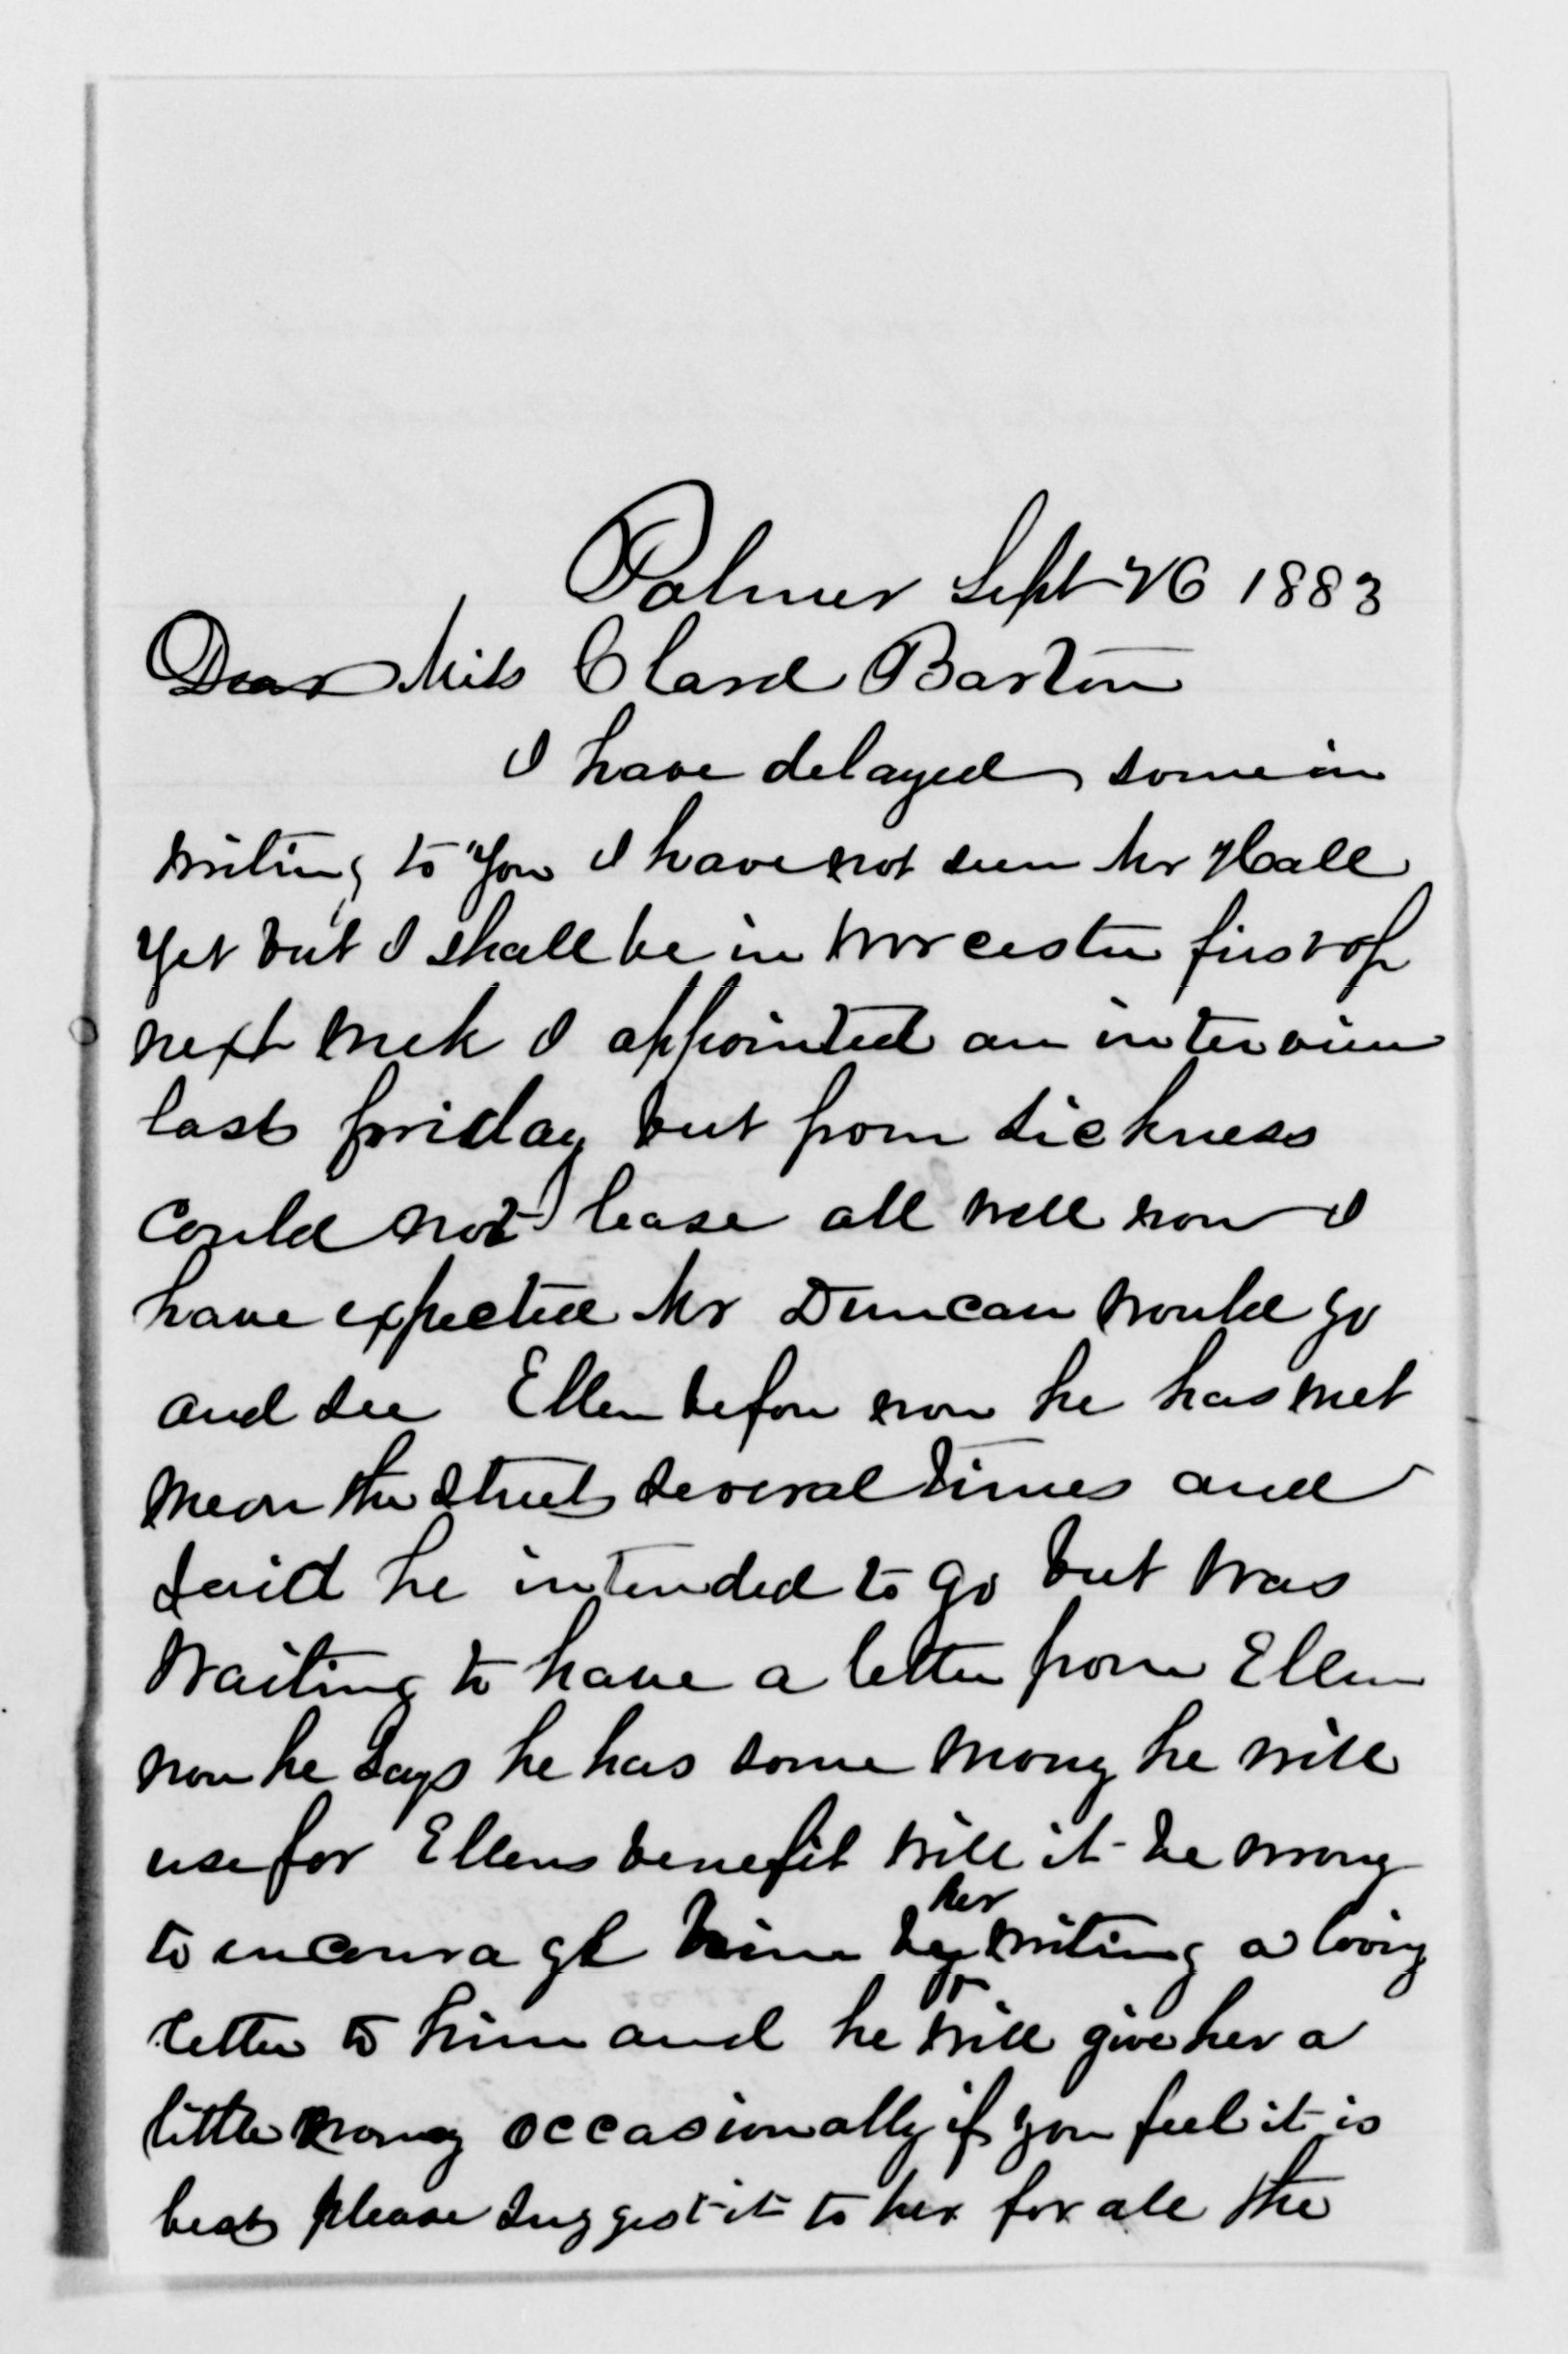 Palmer Sept 26 1883
Dear Miss Clara Barton
I have delayed some in
writing to you I have not seen Mr Hall
yet but I shall be in Worcester first of
next week I appointed an interview
last friday but from sickness
could not lease all well now I
have expected Mr Duncan would go
and see Ellen before now he has met
me on the street several times and
said he intended to go but was
waiting to have a letter from Ellen
now he says he has some mony he will
use for Ellens benefit will it be wrong
to encourage him by her writing a loving
letter to him and he will give her a
little mony occasionally if you feel it is
best please suggest it to her for all the